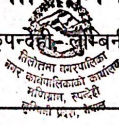 रुपन्देही, लुम्बिनी
तिलोत्तमा नगरपालिका
नगर कार्यपालिकाको कार्यालय
मणिग्राम, रुपन्देही
लुम्बिनी प्रदेश, नेपाल